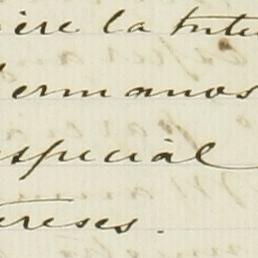 ière la tute
Hermanos
especial
tereses.